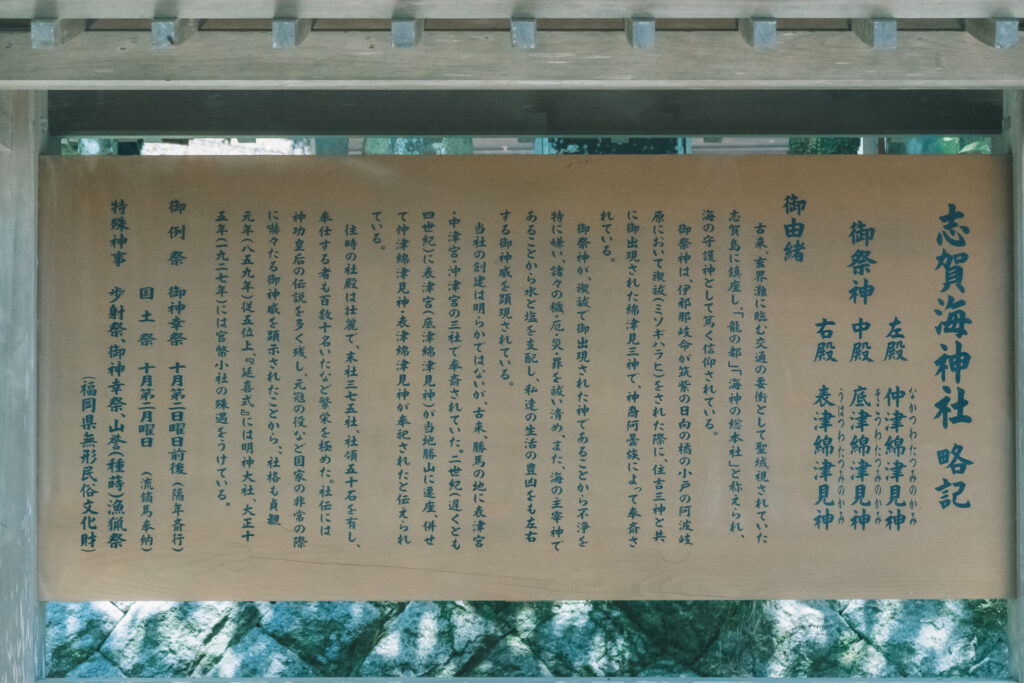 志賀海神社 略記
御祭神
左殿 仲津綿津見神
なかつわたつみのかみ
中殿 底津綿津見神
そこつわたつみのかみ
右殿 表津綿津見神
うはつわたつみのかみ
御由緒
古来、玄界灘に臨む交通の要衝として聖域視されていた
志賀島に鎮座し、「龍の都」「海神の総本社」と称えられ、
海の守護神として篤く信仰されている。
御祭神は、伊邪那岐命が筑紫の日向の橘の小戸の阿波岐
原において禊祓(ミソギハラヒ)をされた際に、住吉三神と共
に御出現された綿津見三神で、神裔阿曇族によって奉斎さ
れている。
御祭神が、禊祓で御出現された神であることから不浄を
特に嫌い、諸々の穢・厄・災・罪を祓い清め、また、海の主宰神で
あることから水と塩を支配し、私達の生活の豊凶をも左右
する御神威を顕現されている。
当社の創建は明らかではないが、古来、勝馬の地に表津宮
・中津宮・沖津宮の三社で奉斎されていた。二世紀(遅くとも
四世紀)に表津宮(底津綿津見神)が当地勝山に遷座、併せ
て仲津綿津見神・表津綿津見神が奉祀されたと伝えられ
ている。
往時の社殿は壮麗で、末社三七五社、社領五十石を有し、
奉仕する者も百数十名いたなど繁栄を極めた。社伝には
神功皇后の伝説を多く残し、元冦の役など国家の非常の際
に嚇々たる御神威を顕示されたことから、社格も貞観
元年(八五九年)従五位上、『延喜式』には明神大社、大正十
五年(一九二七年)には官幣小社の殊遇をうけている。
御例祭 御神幸祭 十月第二日曜日前後(隔年斎行)
国土祭 十月第二月曜日 (流鏑馬奉納)
特殊神事 歩射祭、御神幸祭、山誉(種蒔)漁猟祭
(福岡県無形民俗文化財)